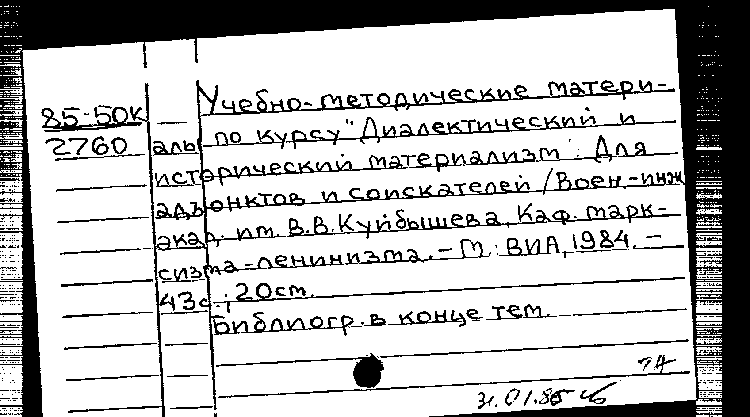 85-50К
2760
Учебно-методические матери-
алы по курсу "Диалектический и
исторический материализм": Для
адъюнктов и соискателей / Воен.-инж.
акад. им. В.В. Куйбышева, Каф. марк-
сизма-ленинизма. – М.: ВИА, 1984. –
43с.; 20см.
Библиогр. в конце тем.
31.01.85